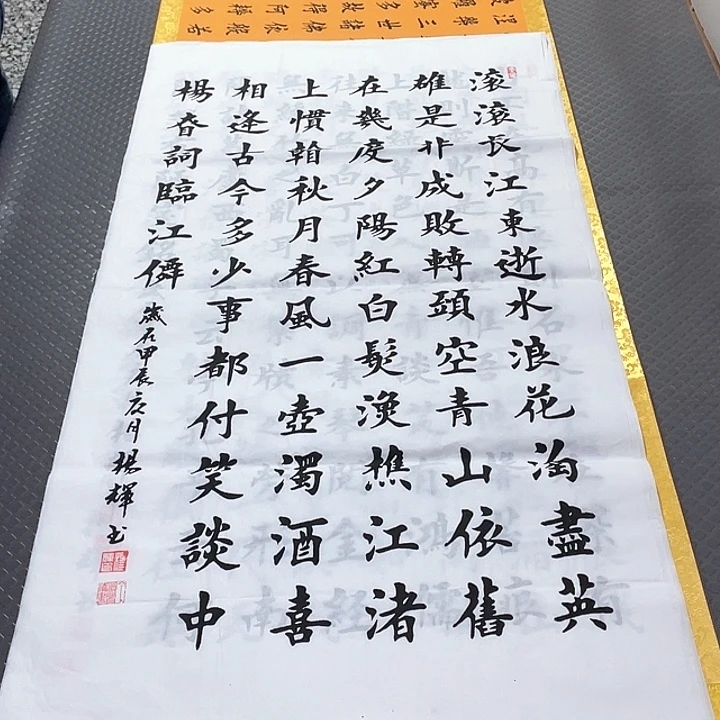 滾滾長江東逝水浪花淘盡英
雄是非成敗轉頭空青山依舊
在幾度夕陽紅白髮漁樵江渚
上慣看秋月春風一壺濁酒喜
相逢古今多少事都付笑談中
楊昚詞臨江僊
歲在甲辰月楊輝书